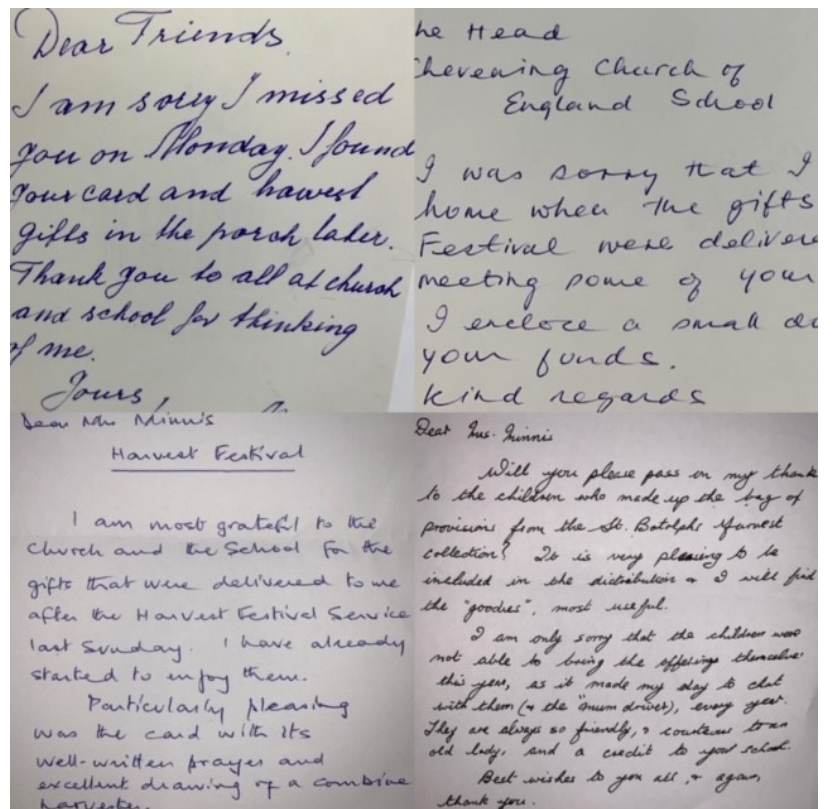 Dear Friends.
I am sorry I missed
you on Monday. I found
your card and harvest
gifts in the porch later.
Thank you to all at church
and school for thinking
of me.
Yours,
he Head
Chevening Church of
England School
I was sorry that I
home when the gifts
Festival were delivere
meeting some of your
I enclose a small do
your funds.
Kind regards
Dear Mrs Minnis
Harvest Festival
I am most grateful to the
Church and the School for the
gifts that were delivered to me
after the Harvest Festival Service
last Sunday. I have already
started to enjoy them.
Particularly pleasing
was the card with its
well-written prayer and
excellent drawing of a combine
harvester.
Dear Mrs. Minnis
Will you please pass on my thank
to the children who made up the bag of
provisions from the St. Botolphs Harvest
collection? It is very pleasing to be
included in the distribution & I will find
the "goodies", most useful.
I am only sorry that the children were
not able to bring the offerings themselves
this year, as it made my day to chat
with them (& the "mum driver), every year.
They are always so friendly, & courteous to an
old lady, and a credit to your school.
Best wishes to you all, & again,
thank you.